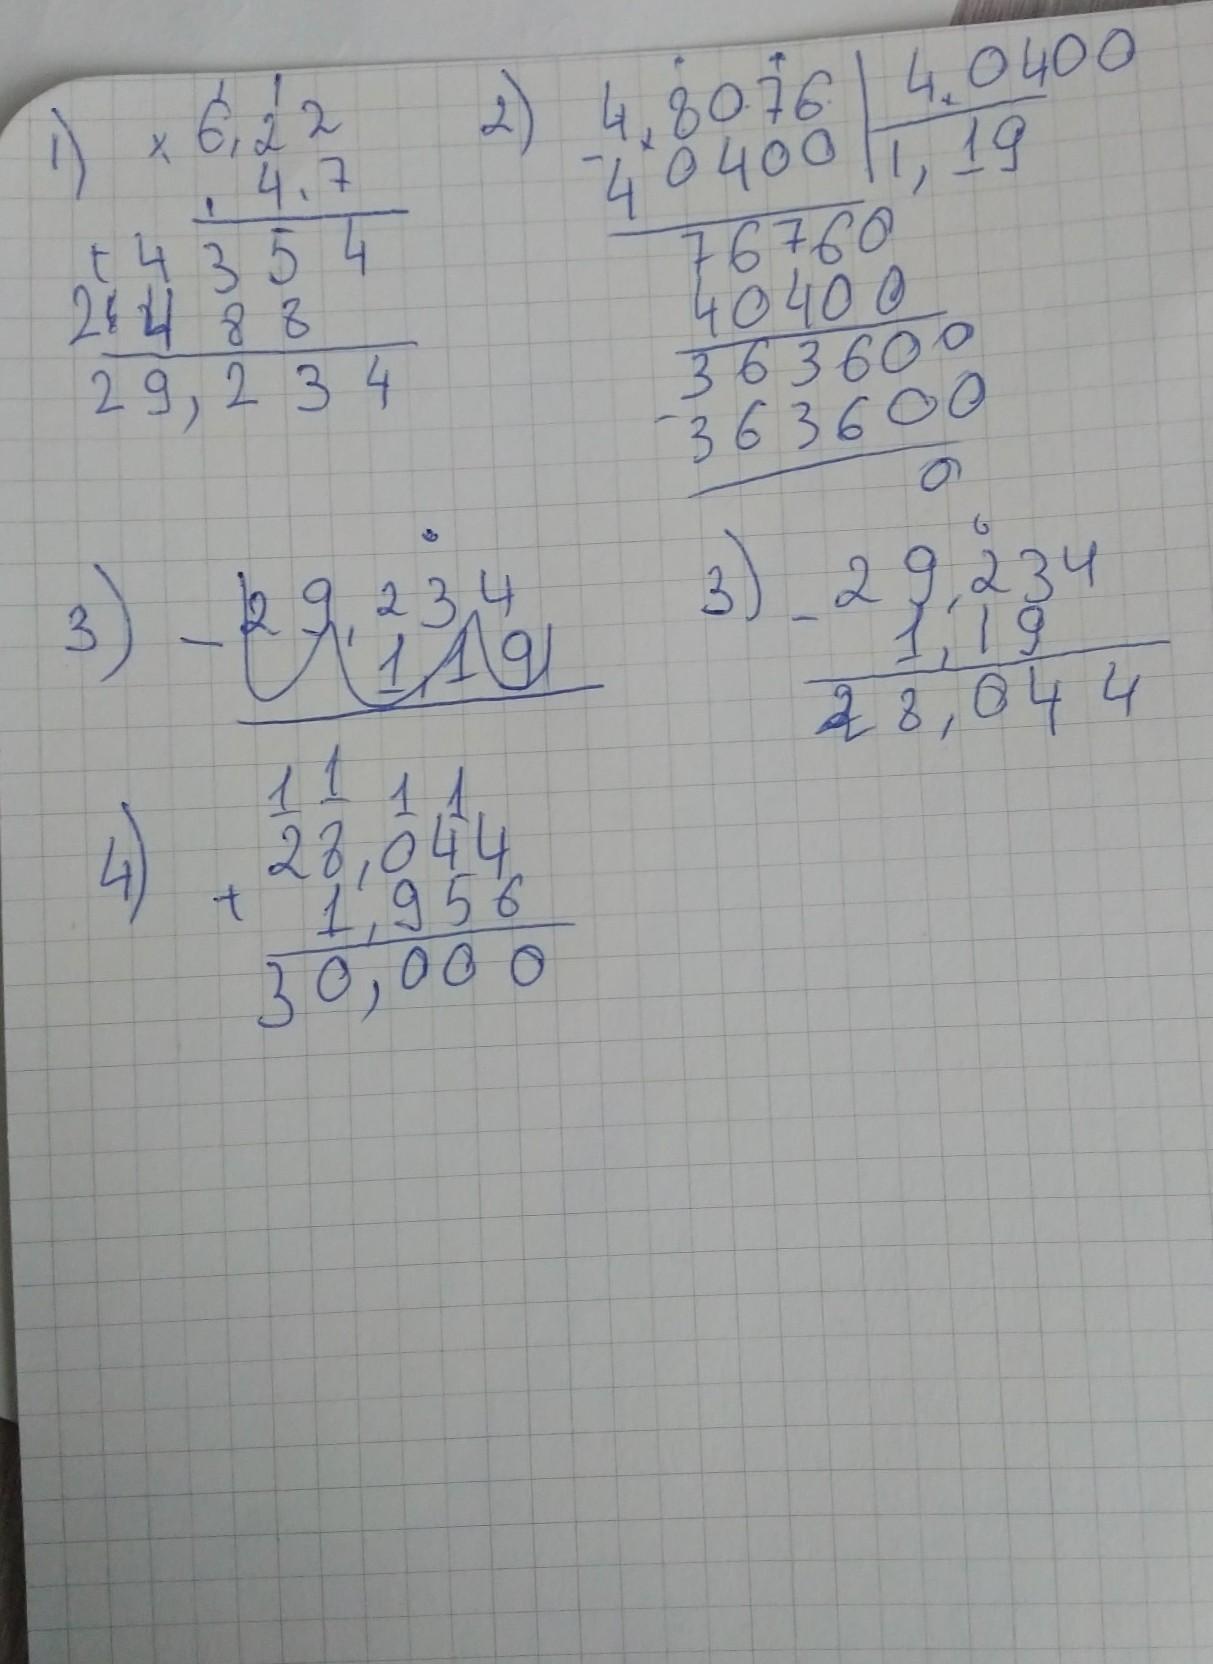 1) × 6,22
4.7
+ 4354
2488
29,234
2) 4,8076 | 4.0400
- 40400 | 1,19
76760
40400
363600
- 363600
0
3) - 29,234
1,19
3) - 29,234
1,19
28,044
4) 1 1 1 1
28,044
+ 1,956
30,000